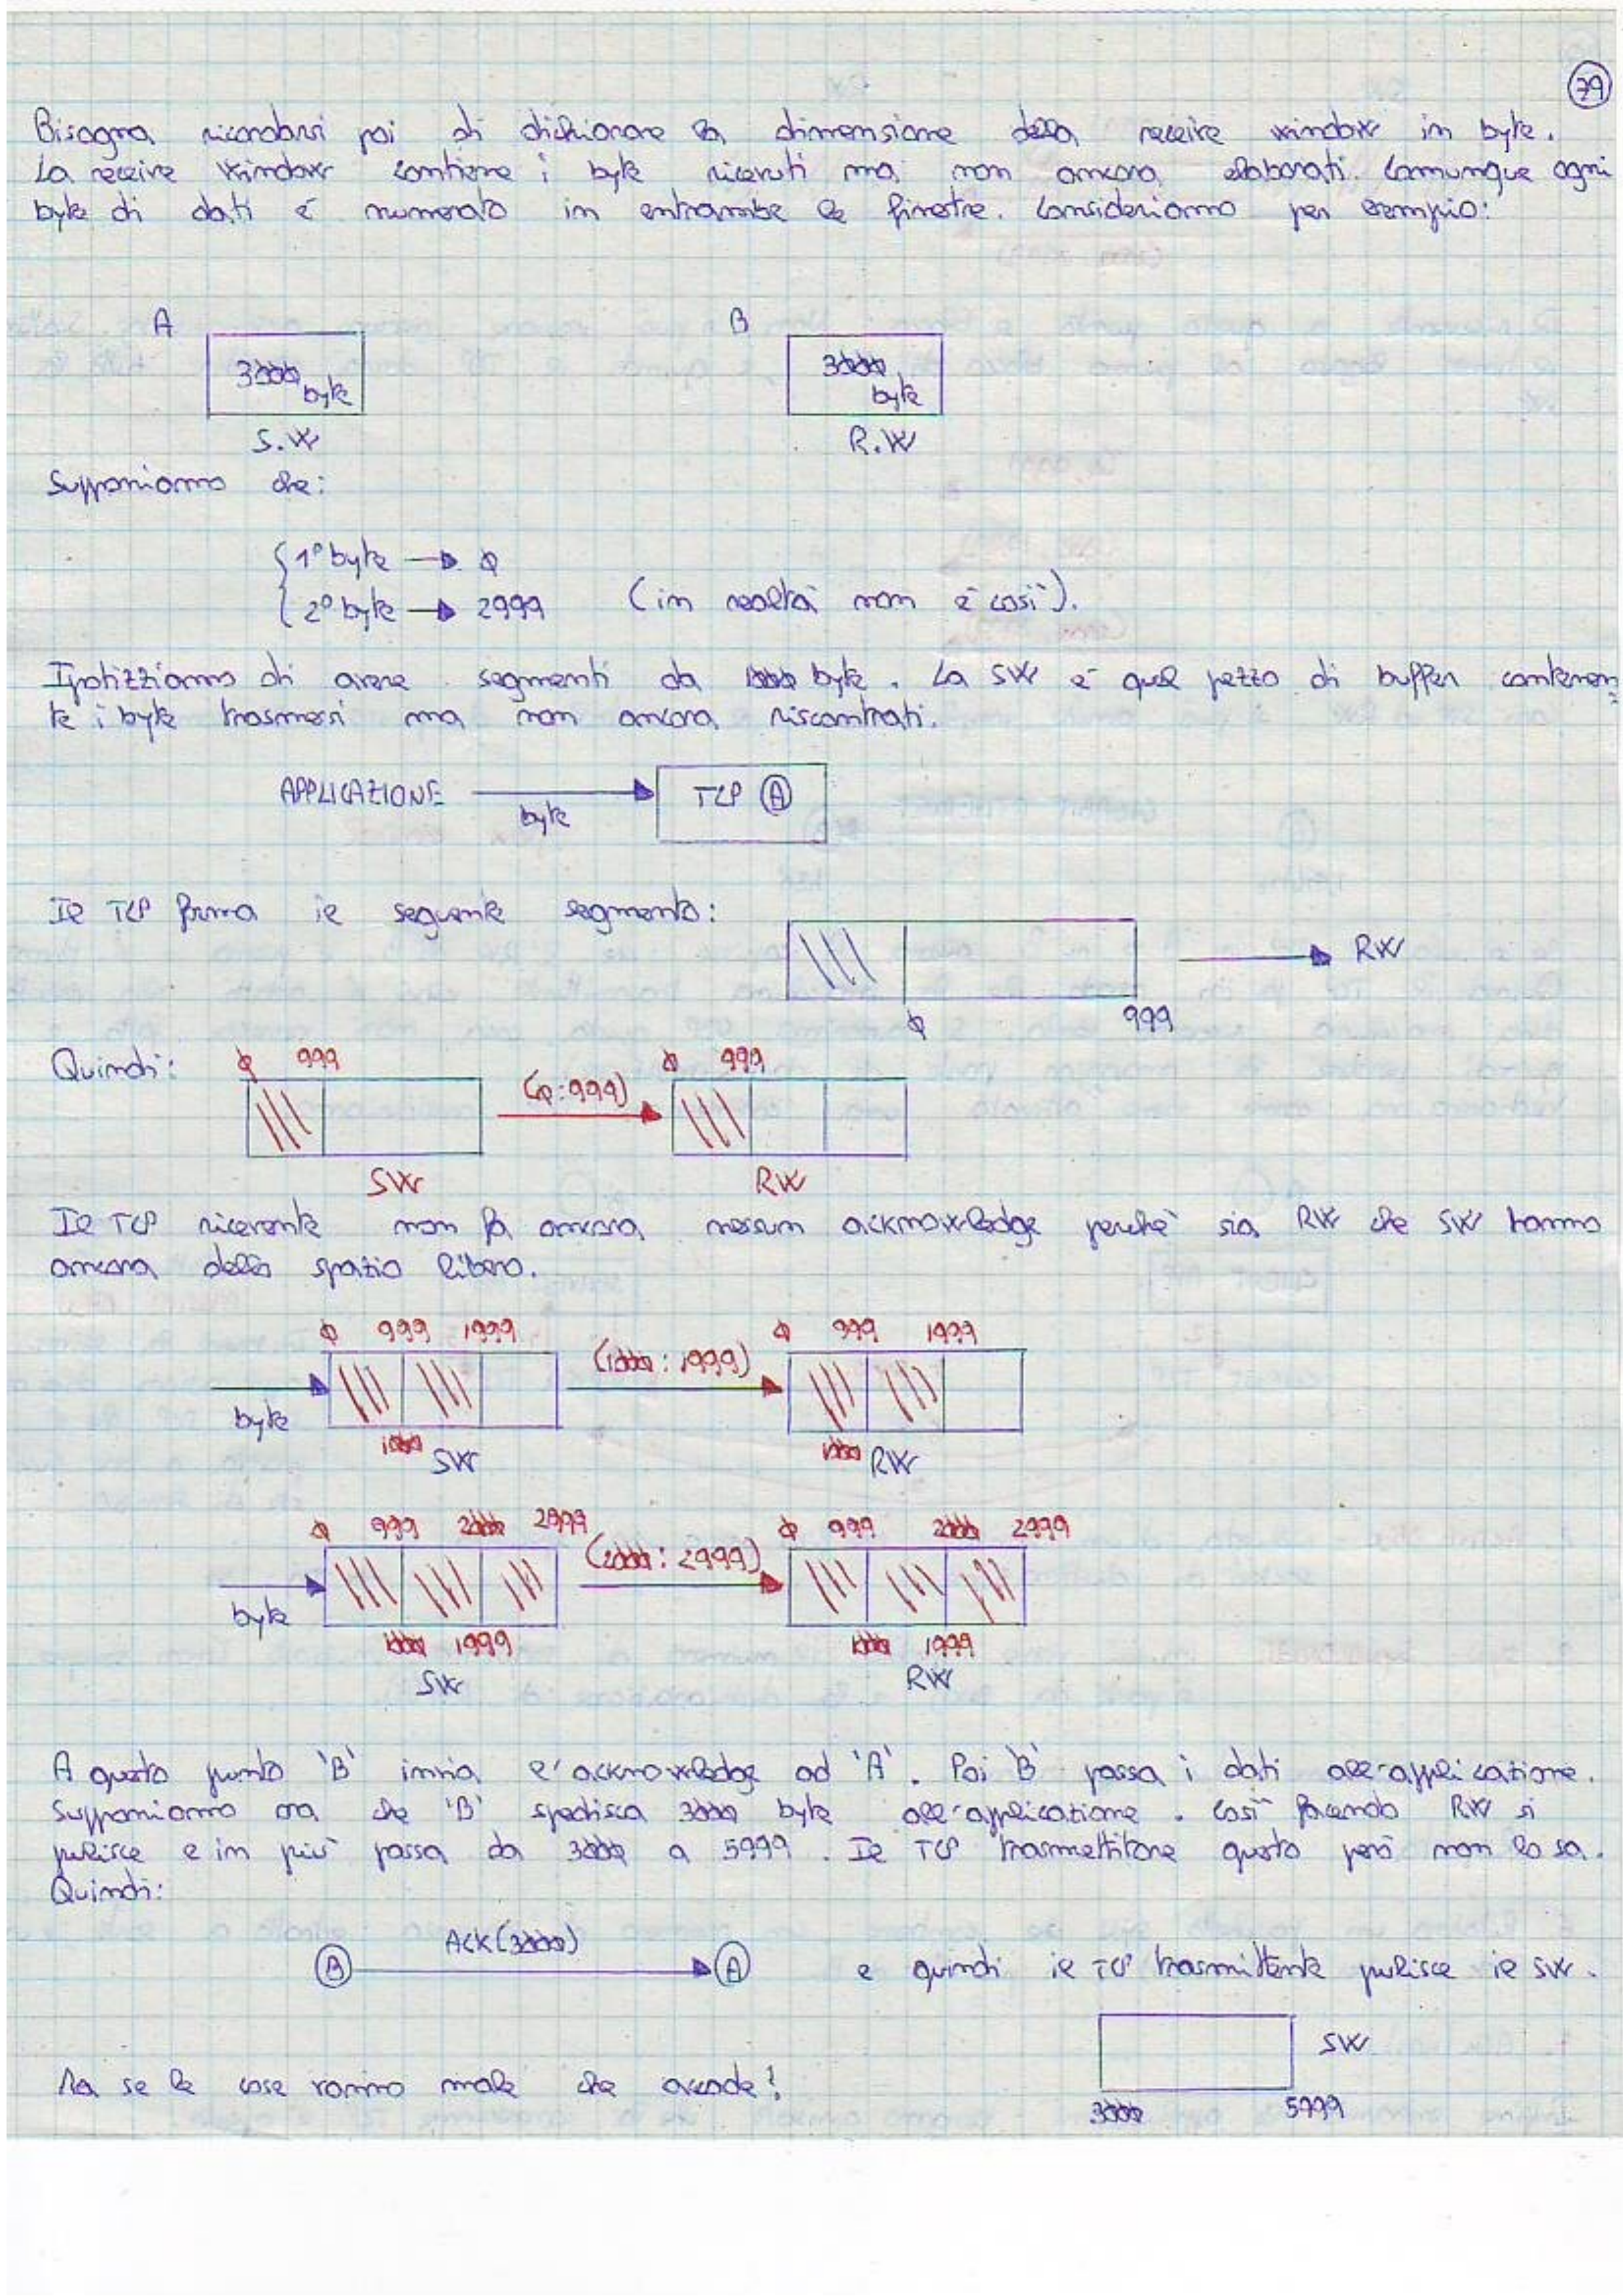 79
Bisogna ricordarsi poi di dichiarare la dimensione della receive window in byte.
La receive window contiene i byte ricevuti ma non ancora elaborati. Comunque ogni
byte di dati è numerato in entrambe le finestre. Consideriamo per esempio:
A B
3000 byte 3000 byte
S.W R.W
Supponiamo che:
1º byte → 0
2º byte → 2999 (in realtà non è così).
Ipotizziamo di avere segmenti da 1000 byte. La SW è quel pezzo di buffer contenen-
te i byte trasmessi ma non ancora riscontrati.
APPLICAZIONE byte TCP A
Il TCP forma il seguente segmento: RW
0 999
Quindi: 0 999 (0:999) 0 999
SW RW
Il TCP ricevente non fa ancora nessun acknowledge perchè sia RW che SW hanno
ancora dello spazio libero.
0 999 1999 (1000:1999) 0 999 1999
byte
1000 SW 1000 RW
0 999 2000 2999 (2000:2999) 0 999 2000 2999
byte
1000 1999 1000 1999
SW RW
A questo punto 'B' invia l'acknowledge ad 'A'. Poi 'B' passa i dati all'applicazione.
Supponiamo ora che 'B' spedisca 3000 byte all'applicazione. Così facendo RW si
pulisce e in più passa da 3000 a 5999. Il TCP trasmettitore questo però non lo sa.
Quindi:
B ACK(3000) A e quindi il TCP trasmittente pulisce il SW.
SW
Ma se le cose vanno male che accade?
3000 5999